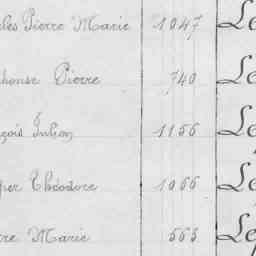 les Pierre Marie 1047 Le
phonse Pierre 740 Le
çois Julien 1156 Le
per Théodore 1066 Le
re Marie 563 Le